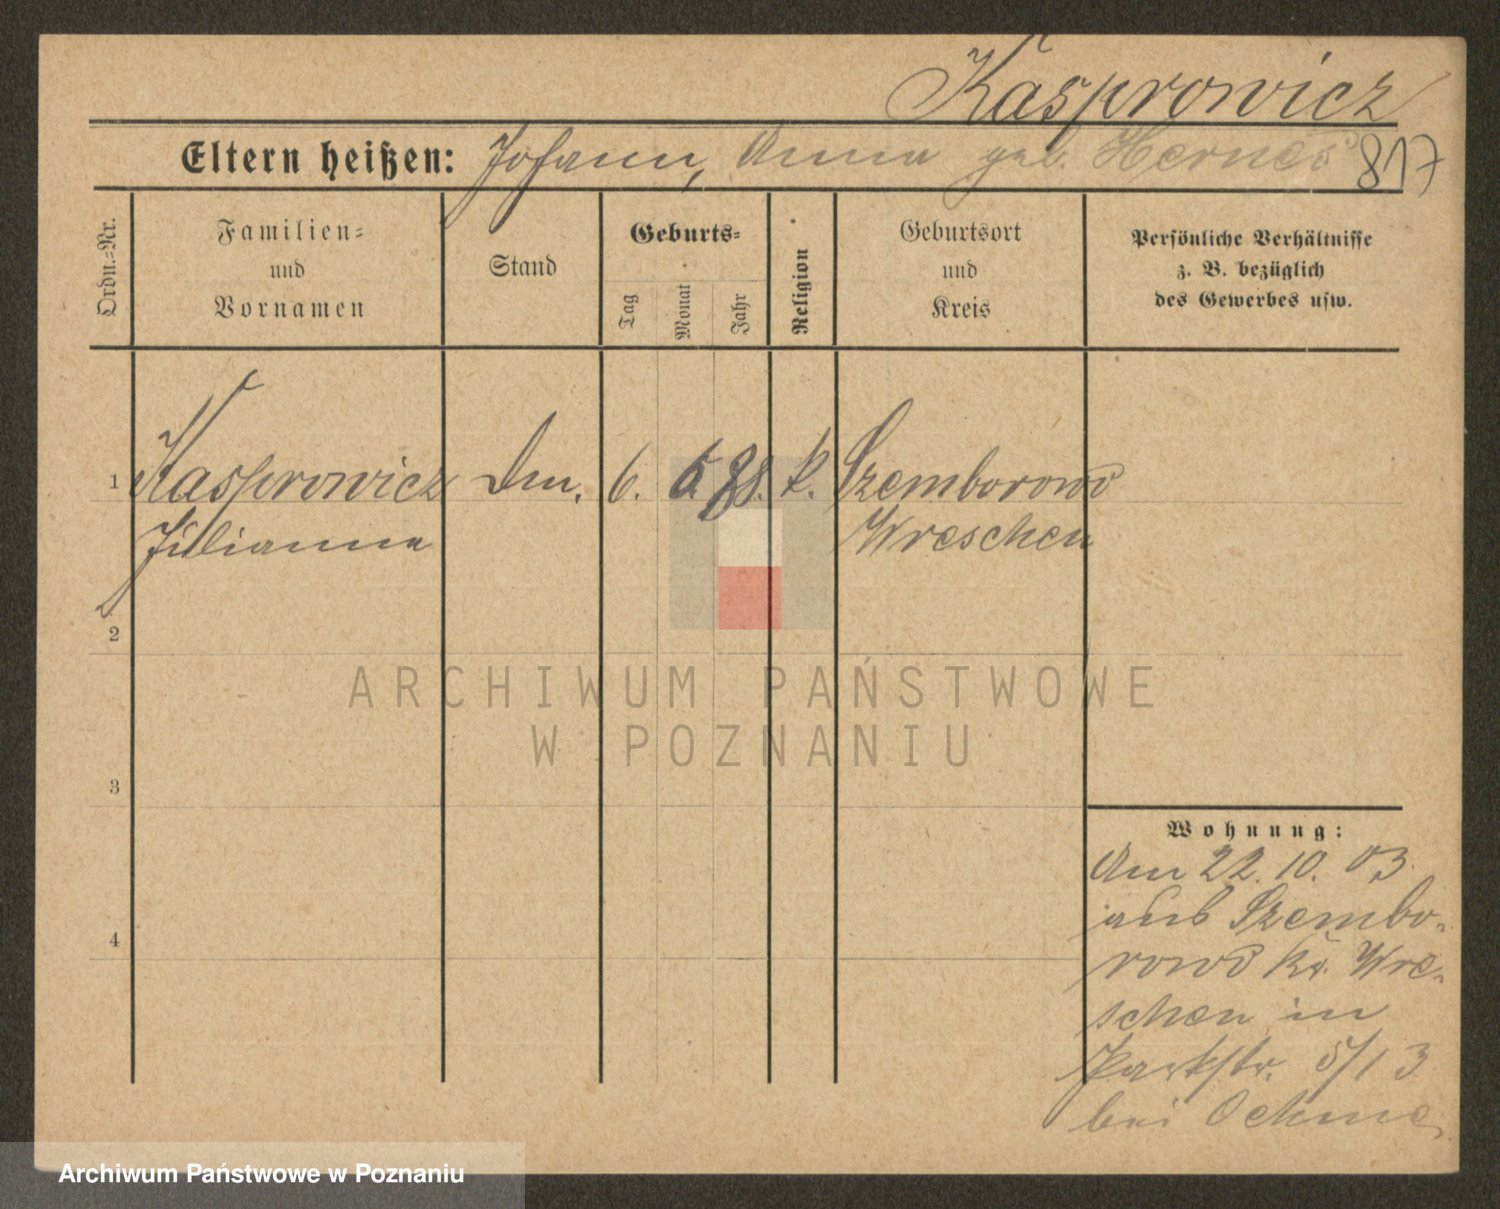 Kasprowicz
Eltern heißen: Johann, Anna geb. Hernes 817
Ordn.=Nr.
Familien=
und
Vornamen
Stand
Geburts=
Tag
Monat
Jahr
Religion
Geburtsort
und
Kreis
Persönliche Verhältnisse
z. B. bezüglich
des Gewerbes usw.
1 Kasprowicz 6. 5. 88. k. Szemborowo
Julianna Wreschen
2
ARCHIWUM PAŃSTWOWE
W POZNANIU
3
4
Wohnung:
Am 22. 10. 03
aus Szembo-
rowo Kr. Wre-
schen in
Parkstr. 5/13
bei Oehme
Archiwum Państwowe w Poznaniu